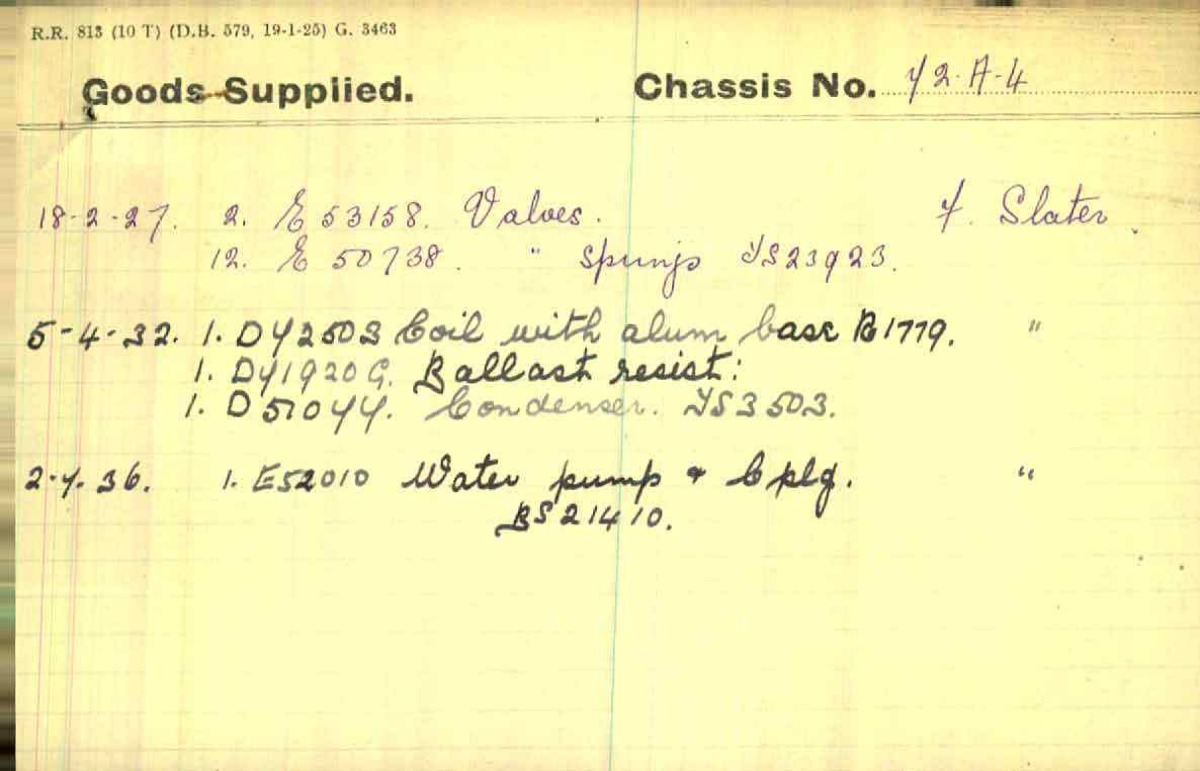 R.R. 813 (10 T) (D.B. 579, 19-1-25) G. 3463
Goods Supplied. Chassis No. 42-A-4
18-2-27. 2. E 53158. Valves. F. Slater
12. E 50738. " Springs JS23923.
5-4-32. 1. DY2503 Coil with alum base B1779. "
1. DY1920G. Ballast resist:
1. D Condenser. JS3503.
2-4.36. 1. E52010 Water pump & Cplg. "
BS21410.